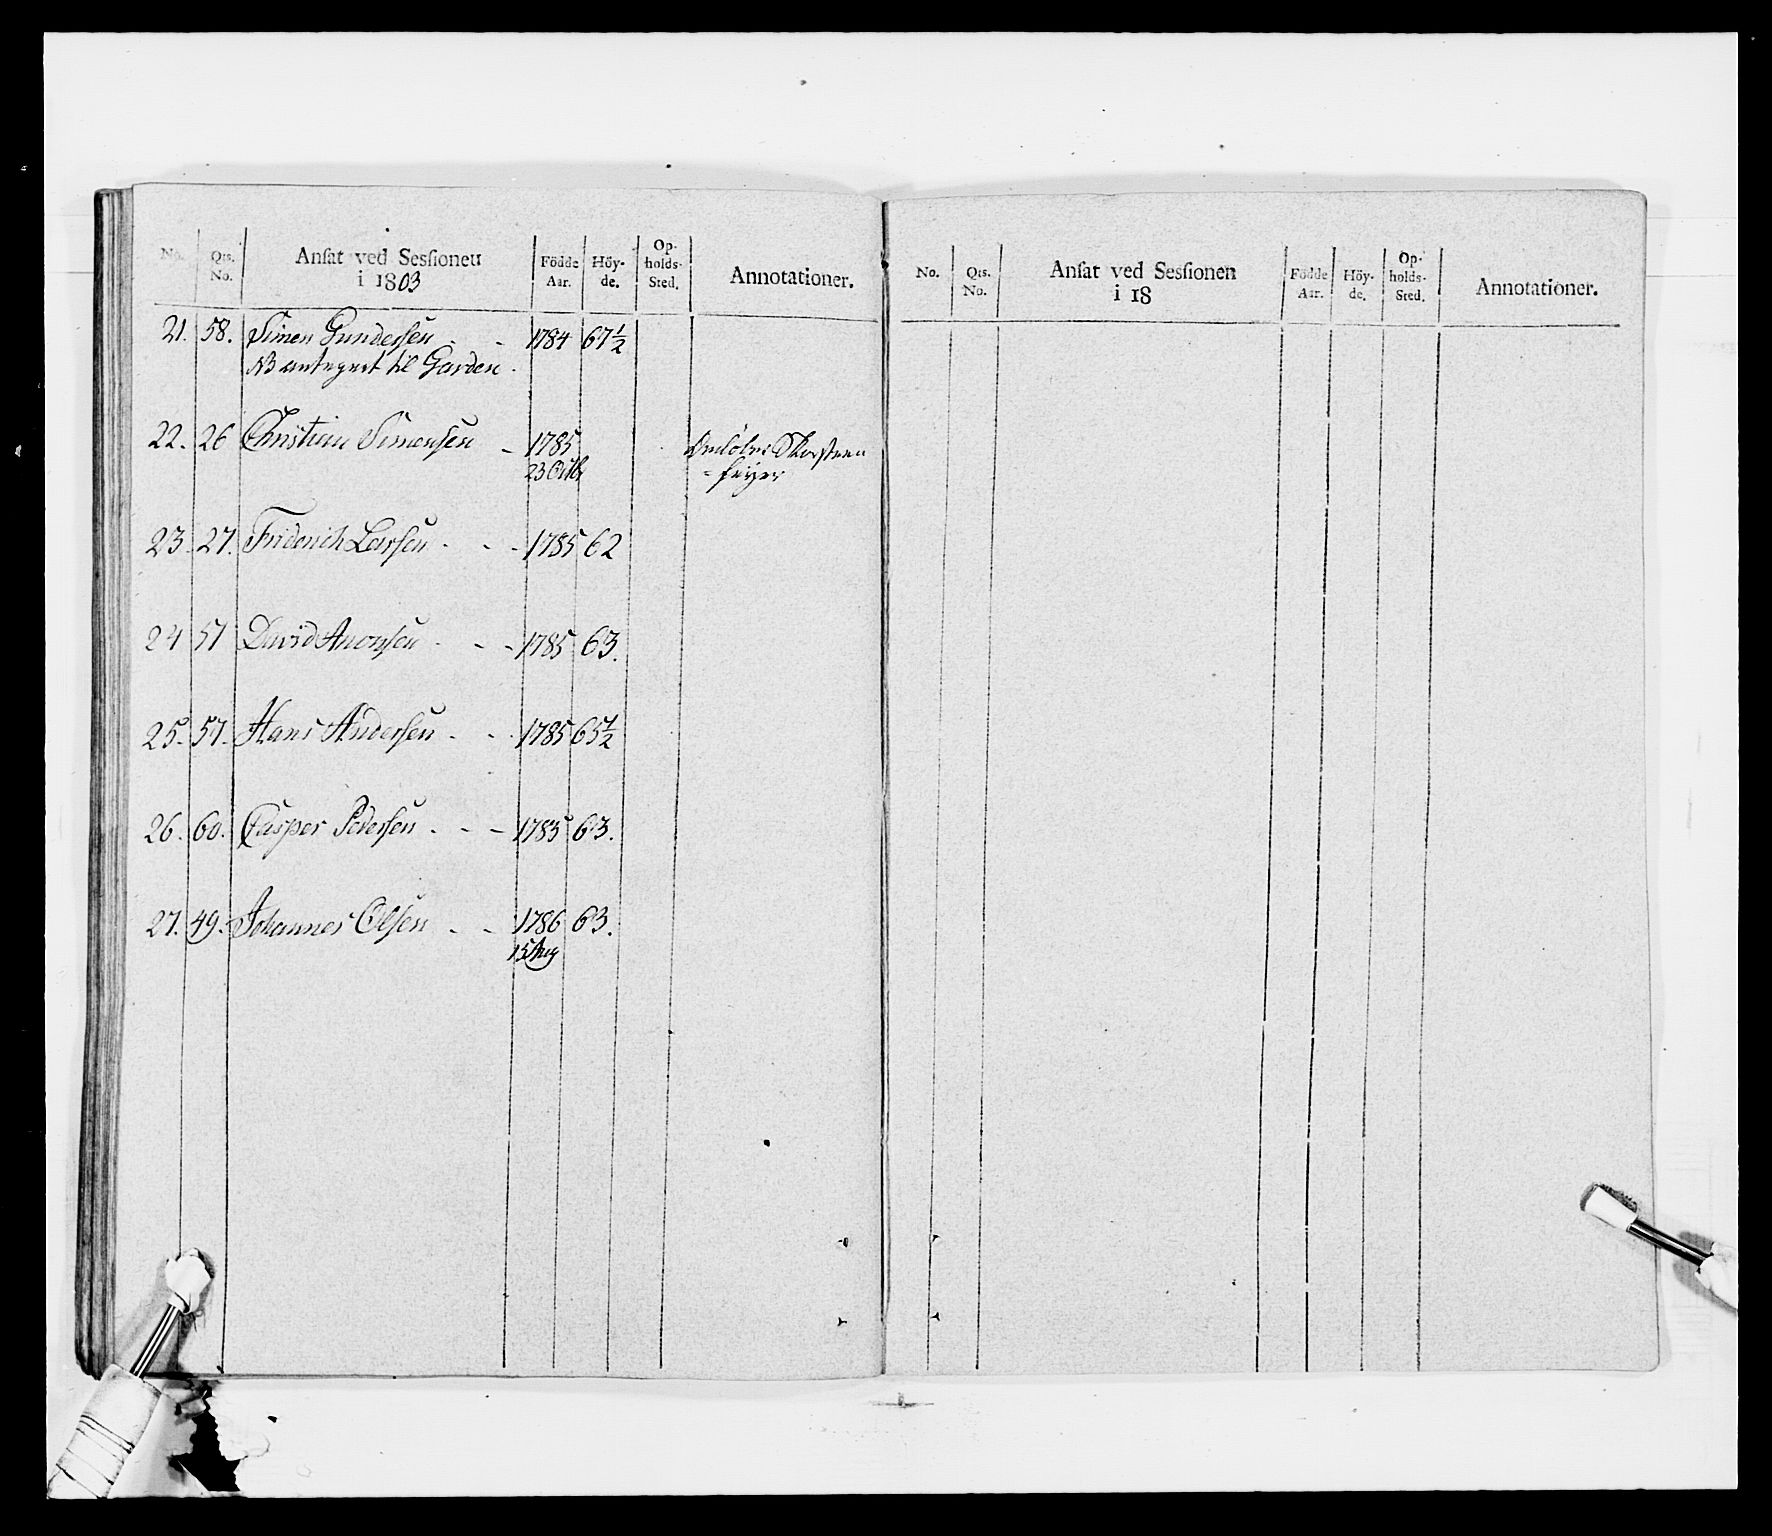 No. Qts. No. Ansat ved Sessionen i 1803 Födde Aar. Höyde. Opholds-Sted. Annotationer.
21. 58. Simen Gundersen - - 1784 67½
NB antegnet til Garden.
22. 26 Christian Simensen - 1785 Skorsteen
23 Octbr = feÿer
23. 27. Friderich Larsen - - - 1785 62
24 51 David Aronsen - - - 1785 63.
25. 57. Hans Andersen - - - 1785 65½
26. 60. Casper Pedersen - - - 1785 63.
27. 49. Johannes Olsen - - 1786 63.
15 Aug
No. Qts. No. Ansat ved Sessionen i 18 Födde Aar. Höyde. Opholds-Sted. Annotationer.